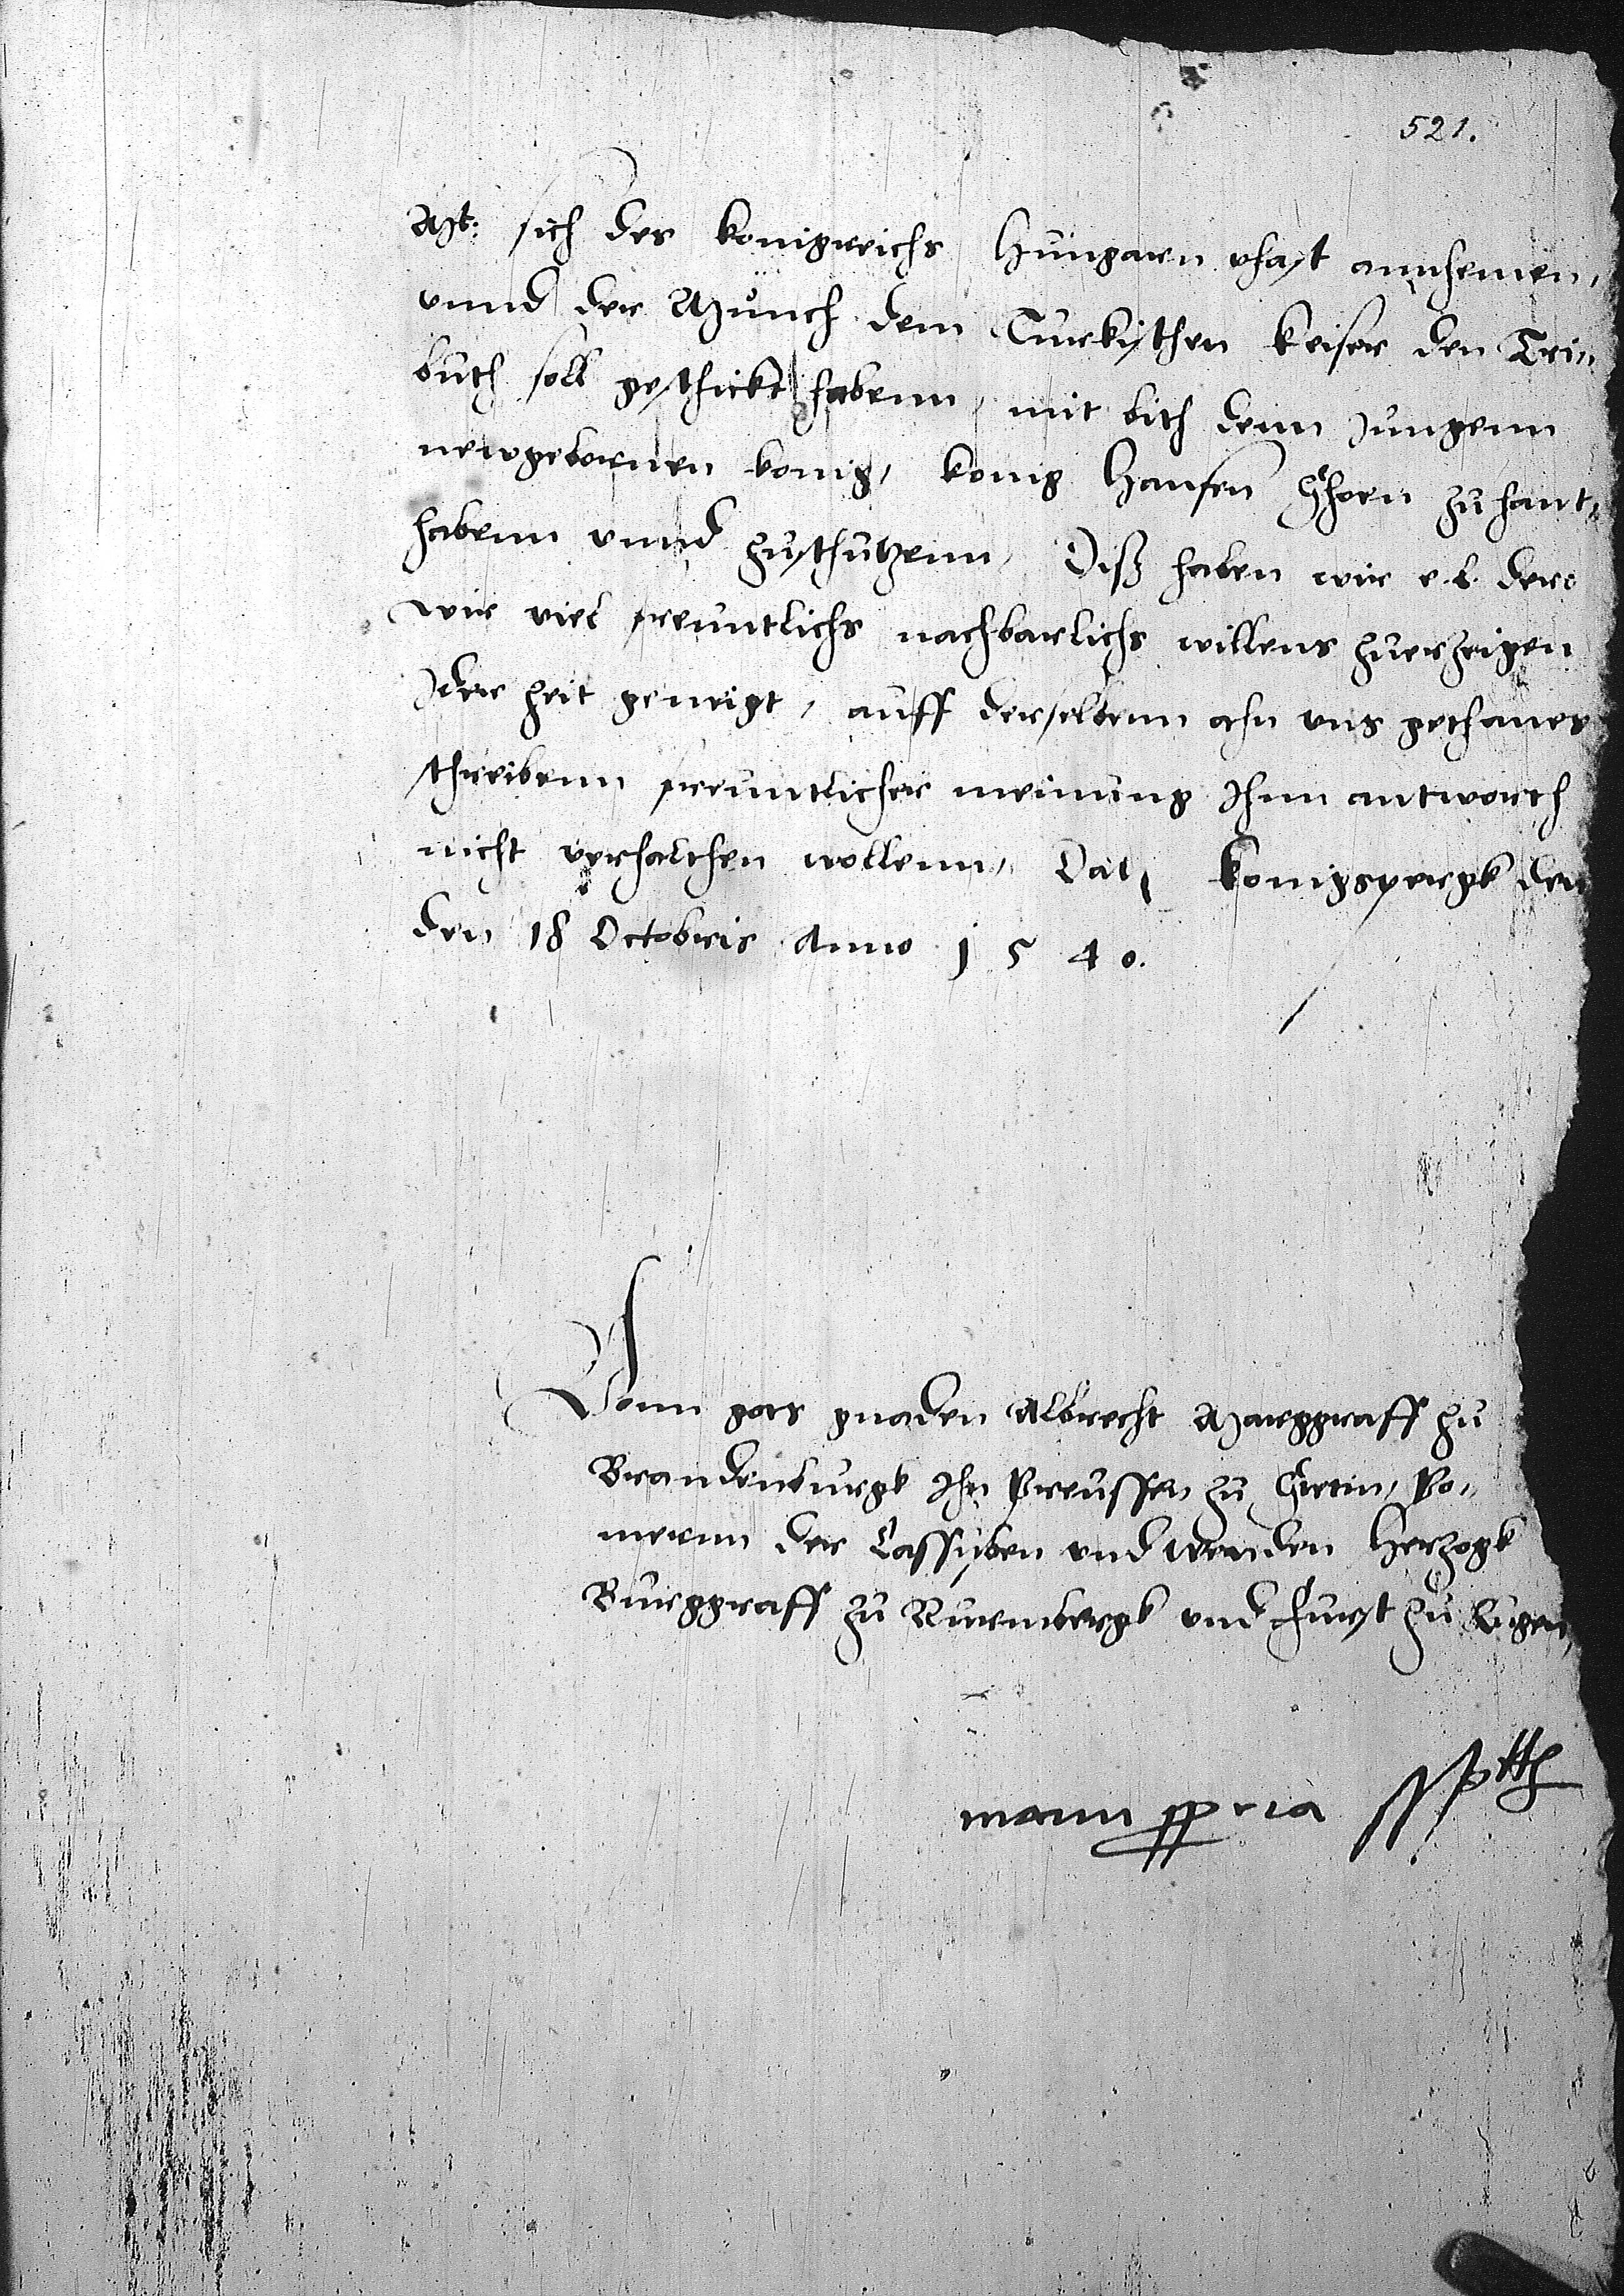 521.
Mt: sich des konigreichs Hungarn vhast annhemen,
vnnd der Münch dem Turkischen keiser den Tri¬
buth soll geschickt habenn, mit bith denn Jungenn
newgebornen konig, konig Hansen Shoen zu hant¬
habenn vnnd zuschutzenn, Diß haben wir e. l. dere
wir viel freuntlichs nachbarlichs willens zuerzeigen
Jder zeit geneigt, auff derselbenn ahn vns gethanes
schreibenn freuntlicher meinung Jhnn antworth
nicht verhalthen wollenn, Dat: konigspergk den
den 18 Octobris Anno 1540.
Vonn gots gnaden Albrecht Marggraff zu
Brandenburgk Jhn Preussen zu Stetin, Po¬
mernn der Cassuben vnd Wenden Hertzogk
Burggraff zu Nurmbergk vnd Furst zu Rugen,
manu ppria sspt